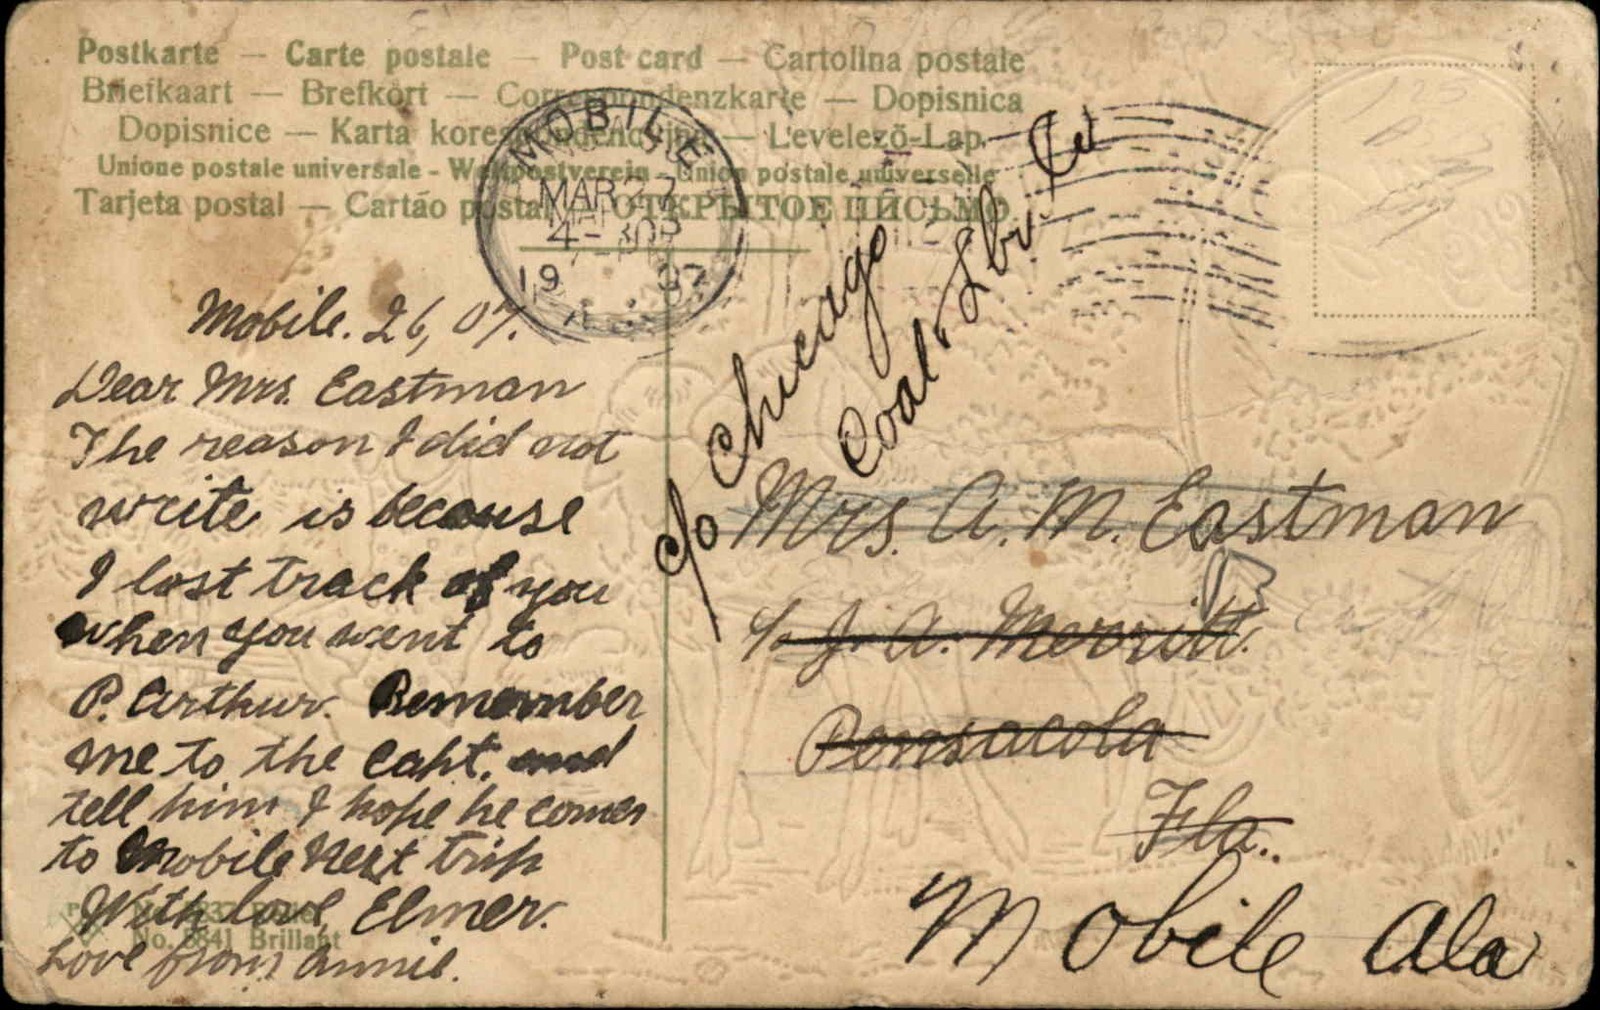 Postkarte — Carte postale — Post card — Cartolina postale
Briefkaart — Brefkort — Correspondenzkarte — Dopisnica
Dopisnice — Karta korespondencyjna — Levelező-Lap.
Unione postale universale - Weltpostverein - Union postale universelle
Tarjeta postal — Cartão postal — ОТКРЫТОЕ ПИСЬМО
MOBILE
MAR 27
4-30P
1907
Mobile. 26, 07.
Dear Mrs. Eastman
The reason I did not
write is because
I lost track of you
when you went to
P. Arthur. Remember
me to the Capt. and
tell him I hope he comes
to Mobile next trip
With love, Elmer.
Love from Annie.
No. 8841 Brillant
c/o Chicago
Coal & Lbr. Co
Mrs. A. M. Eastman
c/o J. A. Merritt.
Pensacola
Fla.
Mobile Ala